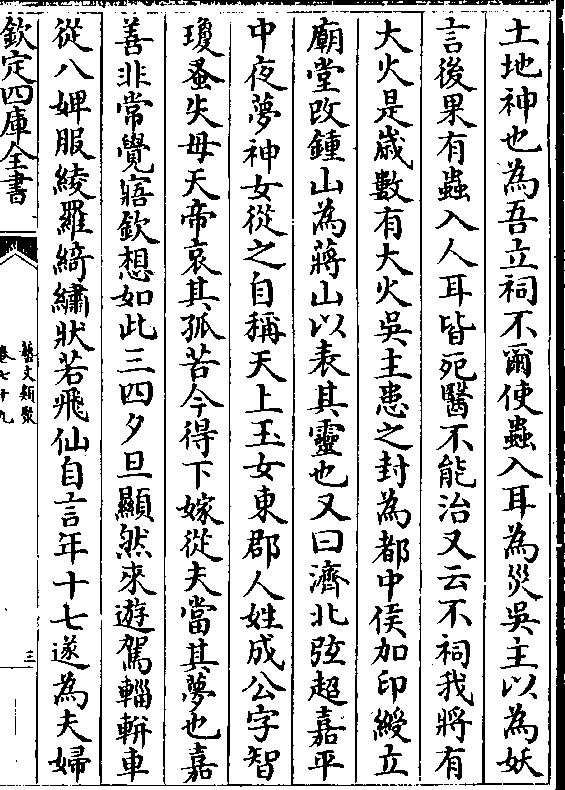 土地神也為吾立祠不爾使蟲入耳為災吳主以為妖
言後果有蟲入人耳皆死醫不能治又云不祠我將有
大火是歲數有大火吳主患之封為都中侯加印綬立
廟堂改鍾山為蔣山以表其靈也又曰濟北弦超嘉平
中夜夢神女從之自稱天上玉女東郡人姓成公字智
瓊蚤失母天帝哀其孤苦今得下嫁從夫當其夢也嘉
善非常覺寤欽想如此三四夕旦顯然來遊駕輜軿車
從八婢服綾羅綺繡狀若飛仙自言年十七遂為夫婦
欽定四庫全書
藝文類聚
卷七十九
三